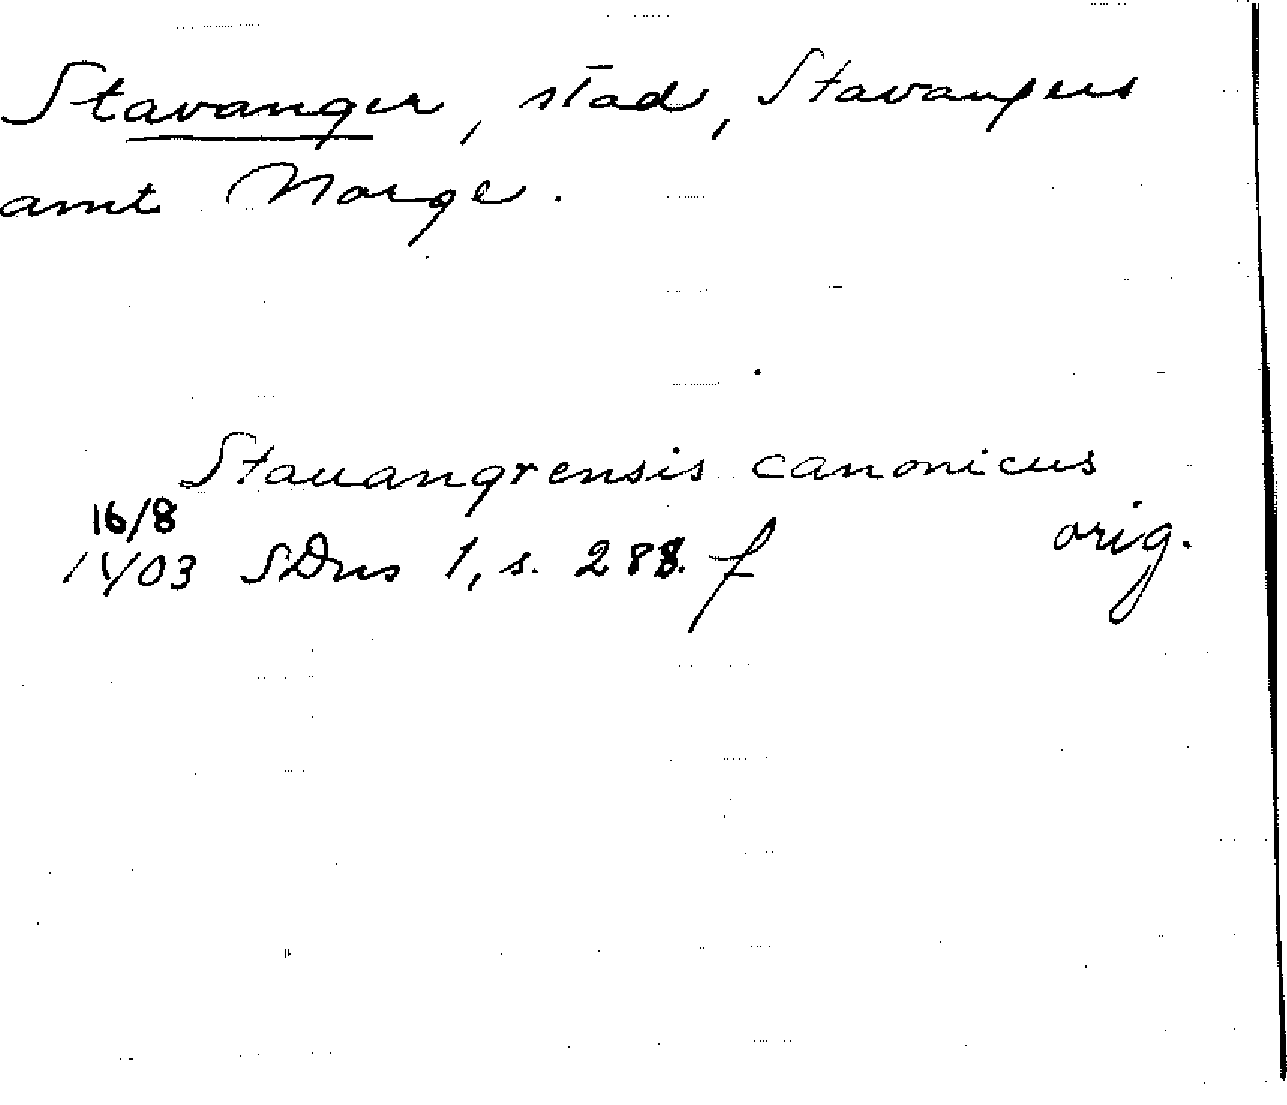 Stavanger, stad, Stavangers
amt Norge.
Stauangrensis canonicus
16/8
1403 SDns 1, s. 288. f orig.